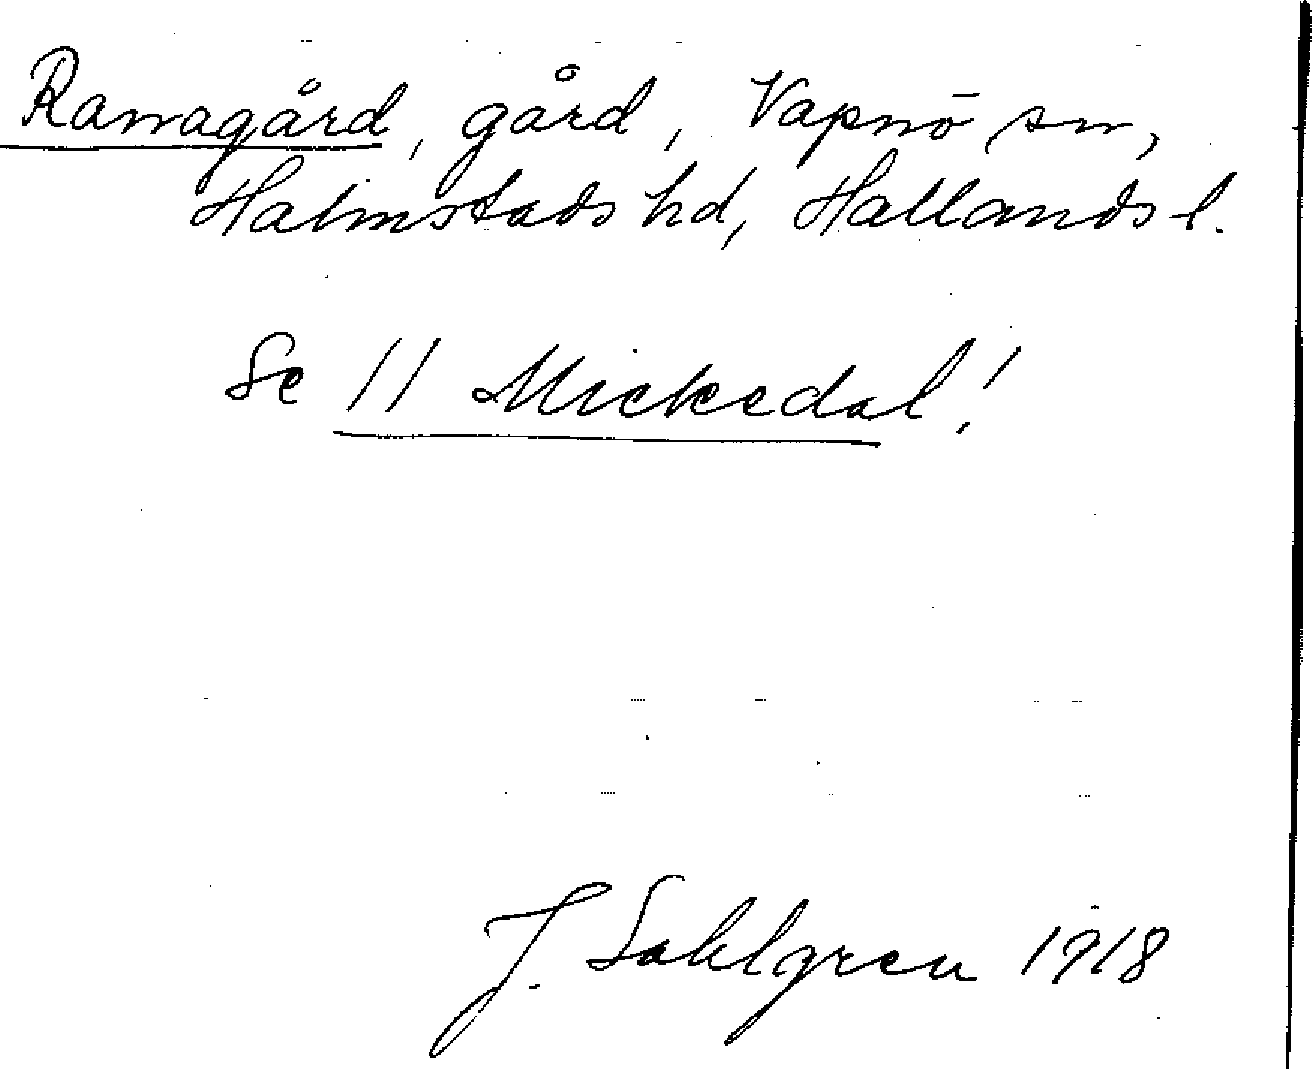 Ramagård, gård, Vapnö sn,
Halmstads hd, Hallands l.
Se 11 Mickedal!
J. Sahlgren 1918